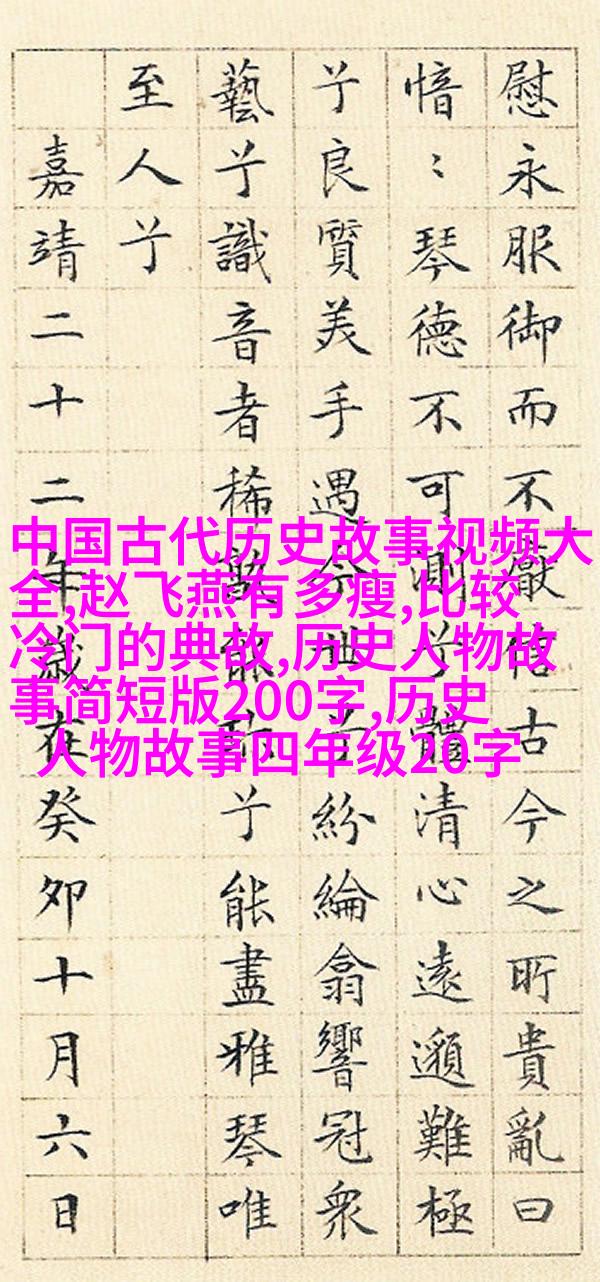 慰永服御而不厭信古今之所貴亂曰
愔〻琴德不可測兮體清心遠邈難極
兮良質美手遇今世兮紛綸翕響冠衆
藝兮識音者稀孰能珍兮能盡雅琴唯
至人兮
嘉靖二十二年歲在癸卯十月六日
中国古代历史故事视频大
全,赵飞燕有多瘦,比较
冷门的典故,历史人物故
事简短版200字,历史
人物故事四年级20字